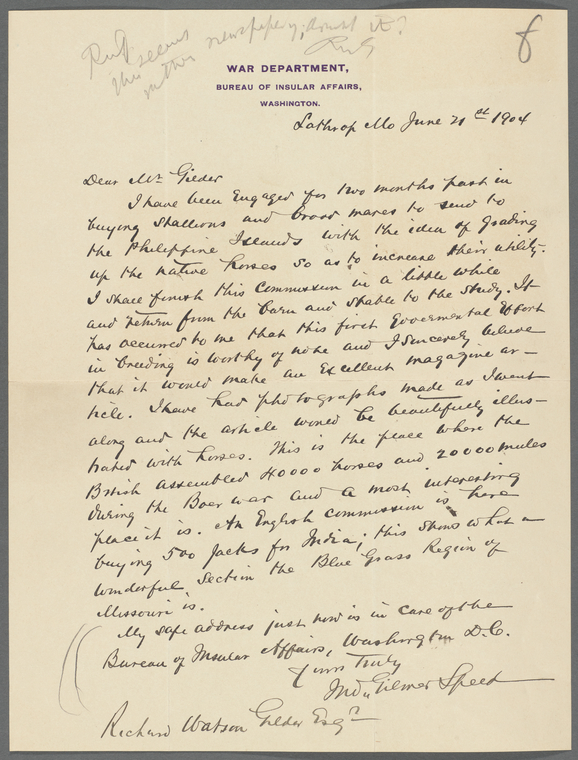 RWG
this seems
rather newspapery; doesn't it?
RWG
8
WAR DEPARTMENT,
BUREAU OF INSULAR AFFAIRS,
WASHINGTON.
Lathrop Mo June 21st 1904
Dear Mr Gilder
I have been Engaged for two months past in
buying Stallions and brood mares to send to
the Philippine Islands with the idea of grading
up the native horses so as to increase their utility.
I shall finish this Commission in a little while
and return from the barn and stable to the study. It
has occurred to me that this first Governmental Effort
in breeding is worthy of note and I sincerely believe
that it would make an Excellent magazine ar-
ticle. I have had photographs made as I went
along and the article would be beautifully illus-
trated with horses. This is the place where the
British assembled 40000 horses and 20000 mules
during the Boer war and a most interesting
place it is. An English commission is here
buying 500 Jacks for India; this shows what a
wonderful Section the Blue Grass Region of
Missouri is.
My safe address just now is in care of the
Bureau of Insular Affairs, Washington D.C.
Yours Truly
Jno Gilmer Speed
Richard Watson Gilder Esqr